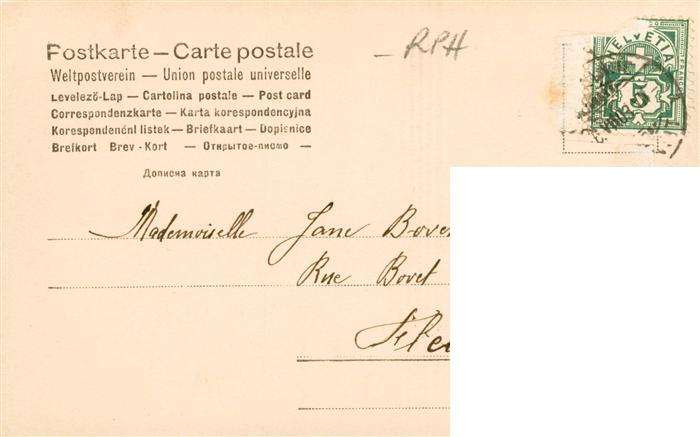 Postkarte – Carte postale
Weltpostverein — Union postale universelle
Levelező-Lap — Cartolina postale — Post card
Correspondenzkarte — Karta korespondencyjna
Korespondenční listek — Briefkaart — Dopisnice
Brefkort Brev-Kort — Открытое-письмо —
Дописна карта
– RPH
HELVETIA
5
Mademoiselle Jane
Rue Bovet